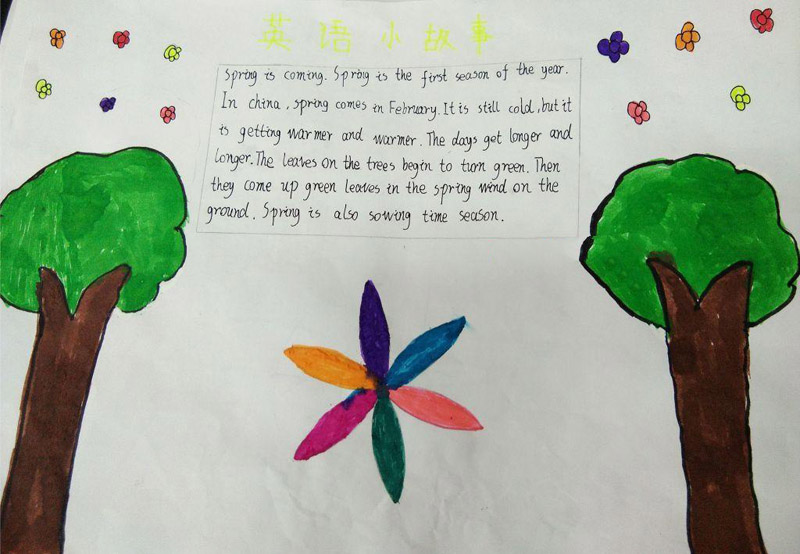 英语小故事
Spring is coming. Spring is the first season of the year.
In china, spring comes in February. It is still cold, but it
is getting warmer and warmer. The days get longer and
longer. The leaves on the trees begin to turn green. Then
they come up green leaves in the spring wind on the
ground. Spring is also sowing time season.